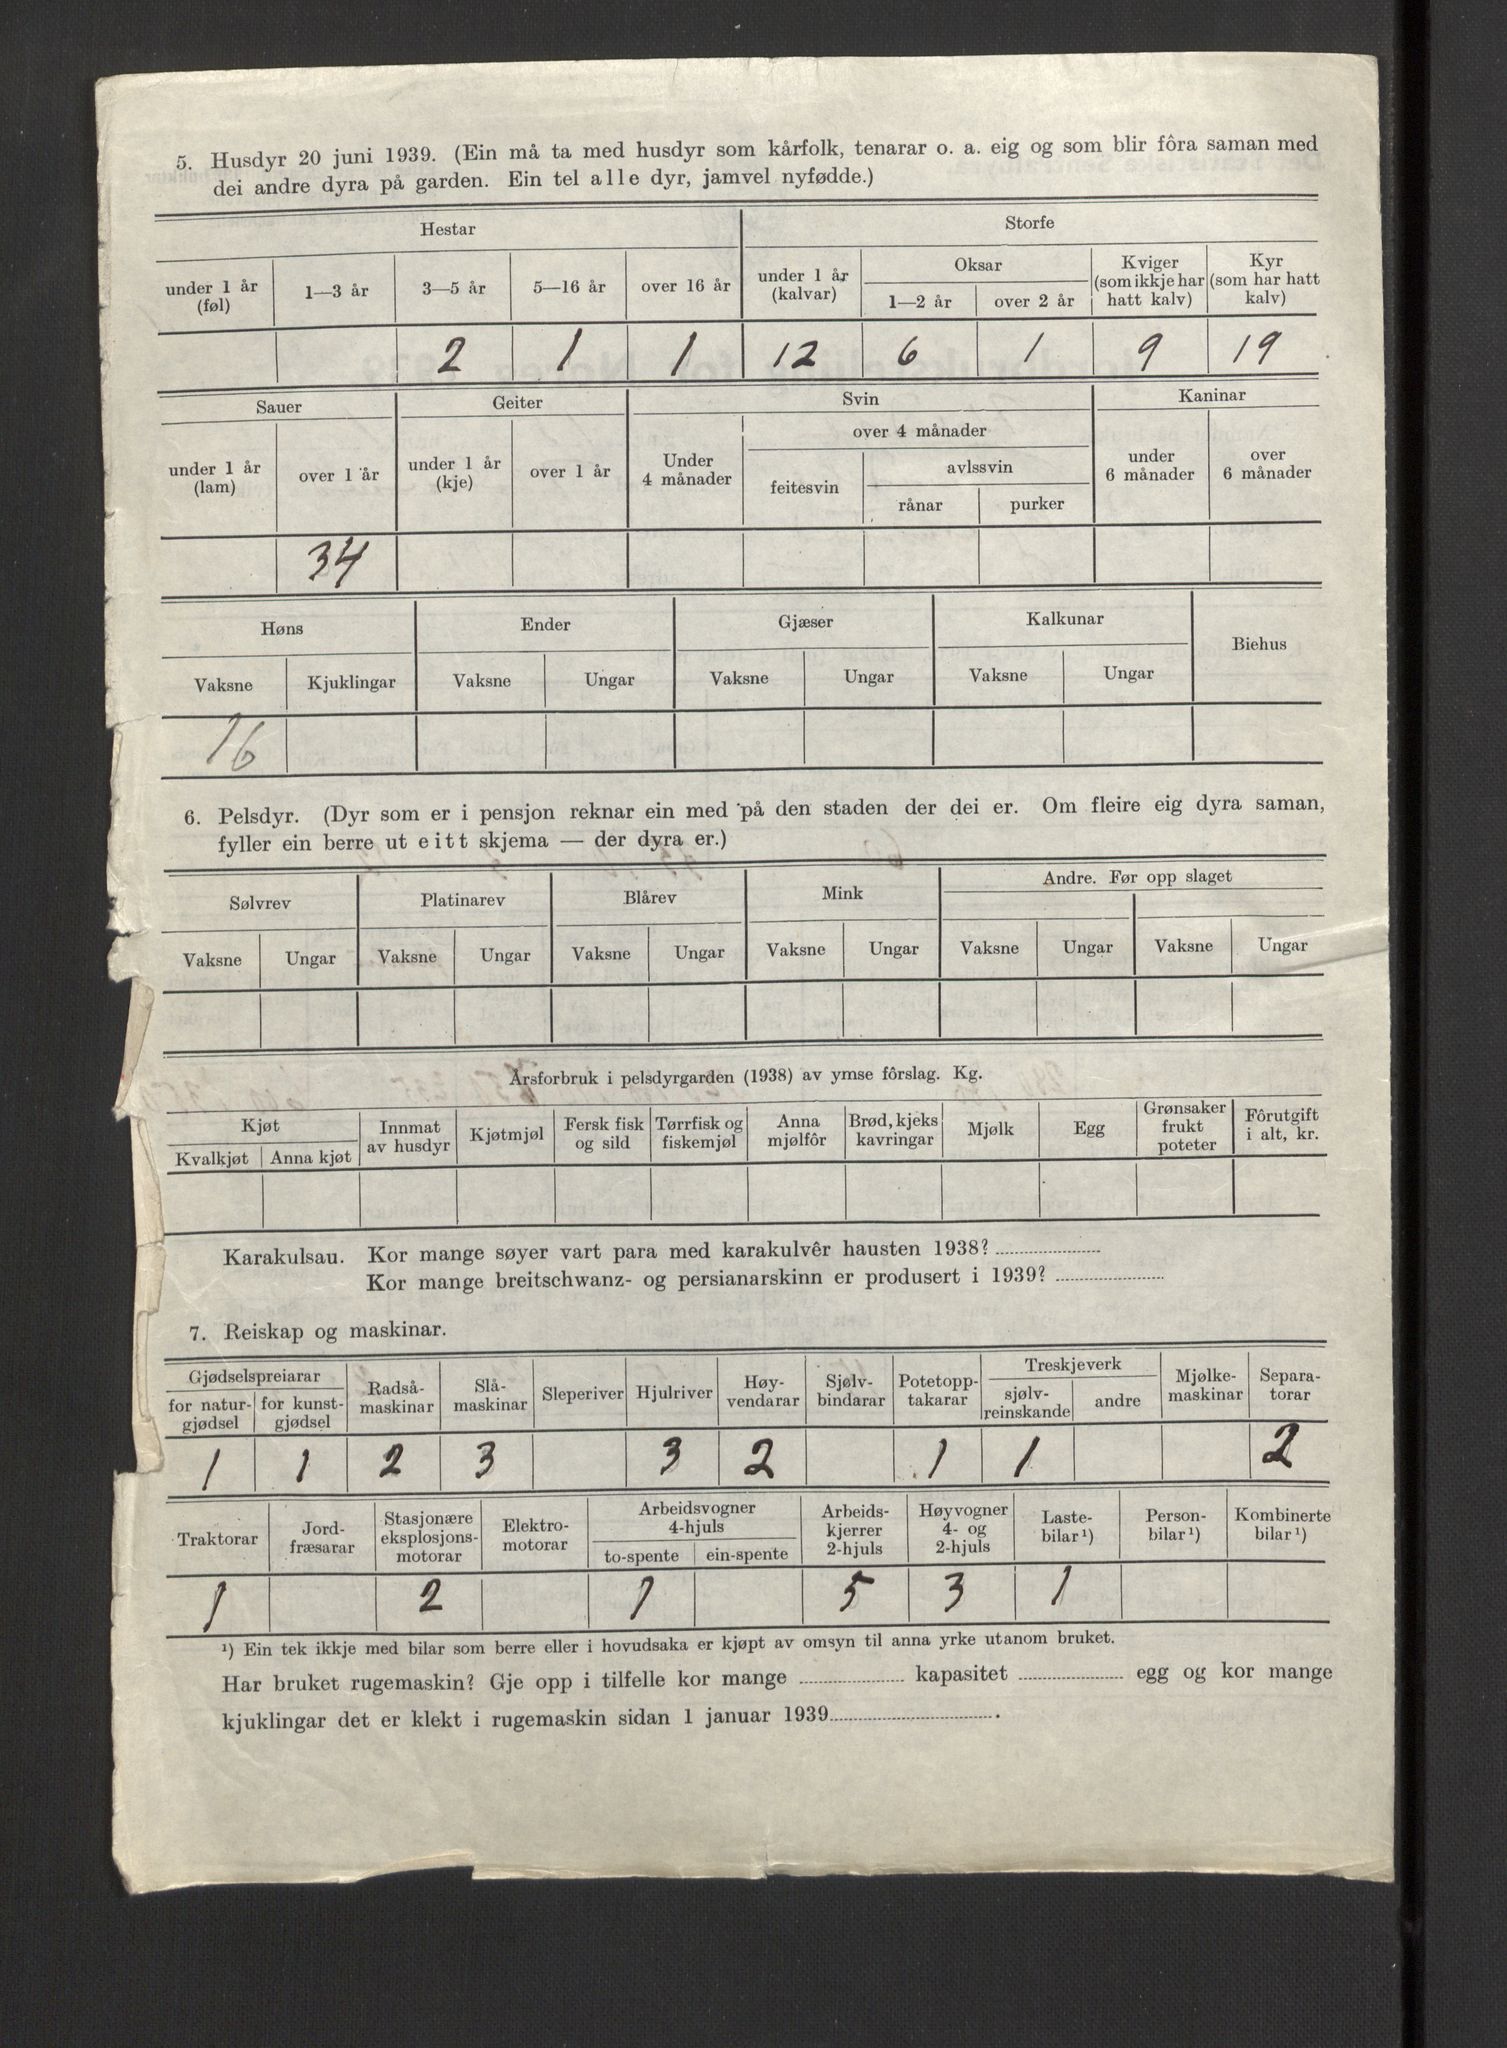 5. Husdyr 20 juni 1939. (Ein må ta med husdyr som kårfolk, tenarar o. a. eig og som blir fôra saman med
dei andre dyra på garden. Ein tel alle dyr, jamvel nyfødde.)
Hestar Storfe
under 1 år (føl) 1—3 år 3—5 år 5—16 år over 16 år under 1 år (kalvar) Oksar 1—2 år over 2 år Kviger (som ikkje har hatt kalv) Kyr (som har hatt kalv)
2 1 1 12 6 1 9 19
Sauer Geiter Svin Kaninar
under 1 år (lam) over 1 år under 1 år (kje) over 1 år Under 4 månader over 4 månader feitesvin avlssvin rånar purker under 6 månader over 6 månader
34
Høns Ender Gjæser Kalkunar Biehus
Vaksne Kjuklingar Vaksne Ungar Vaksne Ungar Vaksne Ungar
16
6. Pelsdyr. (Dyr som er i pensjon reknar ein med på den staden der dei er. Om fleire eig dyra saman,
fyller ein berre ut eitt skjema — der dyra er.)
Sølvrev Platinarev Blårev Mink Andre. Før opp slaget
Vaksne Ungar Vaksne Ungar Vaksne Ungar Vaksne Ungar Vaksne Ungar Vaksne Ungar
Årsforbruk i pelsdyrgarden (1938) av ymse fôrslag. Kg.
Kjøt Kvalkjøt Anna kjøt Innmat av husdyr Kjøtmjøl Fersk fisk og sild Tørrfisk og fiskemjøl Anna mjølfôr Brød, kjeks kavringar Mjølk Egg Grønsaker frukt poteter Fôrutgift i alt, kr.
Karakulsau. Kor mange søyer vart para med karakulvêr hausten 1938?
Kor mange breitschwanz- og persianarskinn er produsert i 1939?
7. Reiskap og maskinar.
Gjødselspreiarar for natur-gjødsel for kunst-gjødsel Radså-maskinar Slå-maskinar Sleperiver Hjulriver Høy-vendarar Sjølv-bindarar Potetopp-takarar Treskjeverk sjølv-reinskande andre Mjølke-maskinar Separa-torar
1 1 2 3 3 2 1 1 2
Traktorar Jord-fræsarar Stasjonære eksplosjons-motorar Elektro-motorar Arbeidsvogner 4-hjuls to-spente ein-spente Arbeids-kjerrer 2-hjuls Høyvogner 4- og 2-hjuls Laste-bilar ¹) Person-bilar ¹) Kombinerte bilar ¹)
1 2 1 5 3 1
¹) Ein tek ikkje med bilar som berre eller i hovudsaka er kjøpt av omsyn til anna yrke utanom bruket.
Har bruket rugemaskin? Gje opp i tilfelle kor mange kapasitet egg og kor mange
kjuklingar det er klekt i rugemaskin sidan 1 januar 1939.